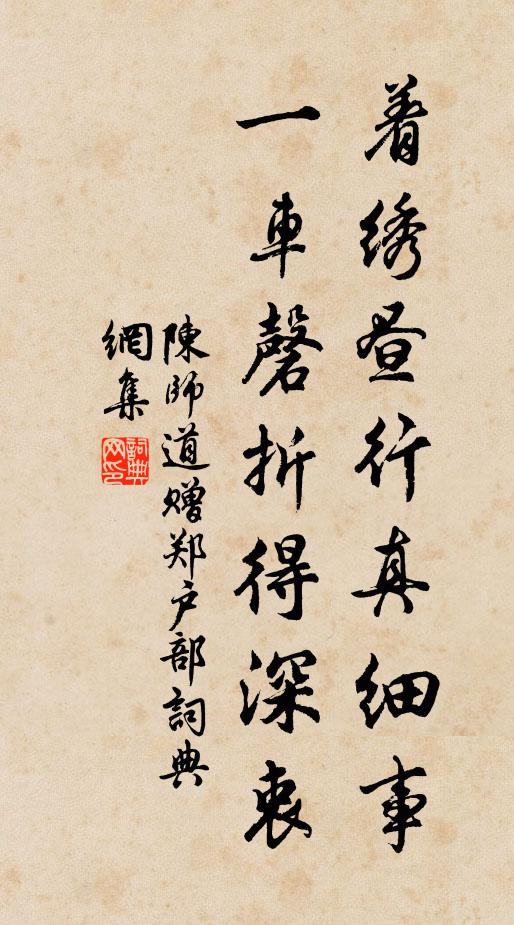 着绣昼行真细事
一車磬折得深衷
陳師道赠郑户部詞典
網集
詞典
网印